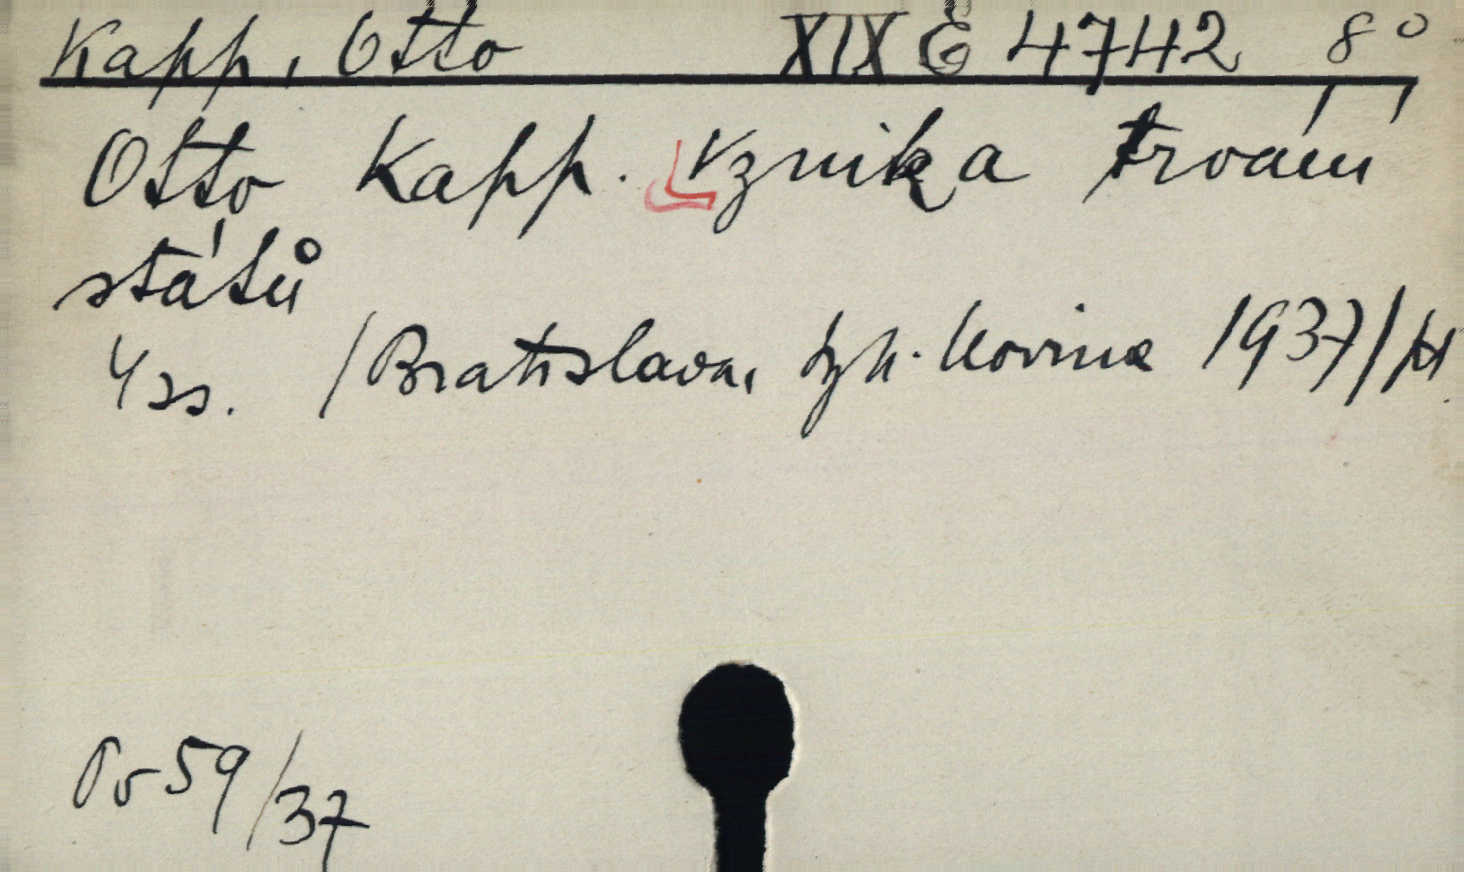 Kapp, Otto XIX E 4742 8°
Otto Kapp. Vznik a trvání
států
4 ss. /Bratislava, typ. Novina 1937/
Po 59/37